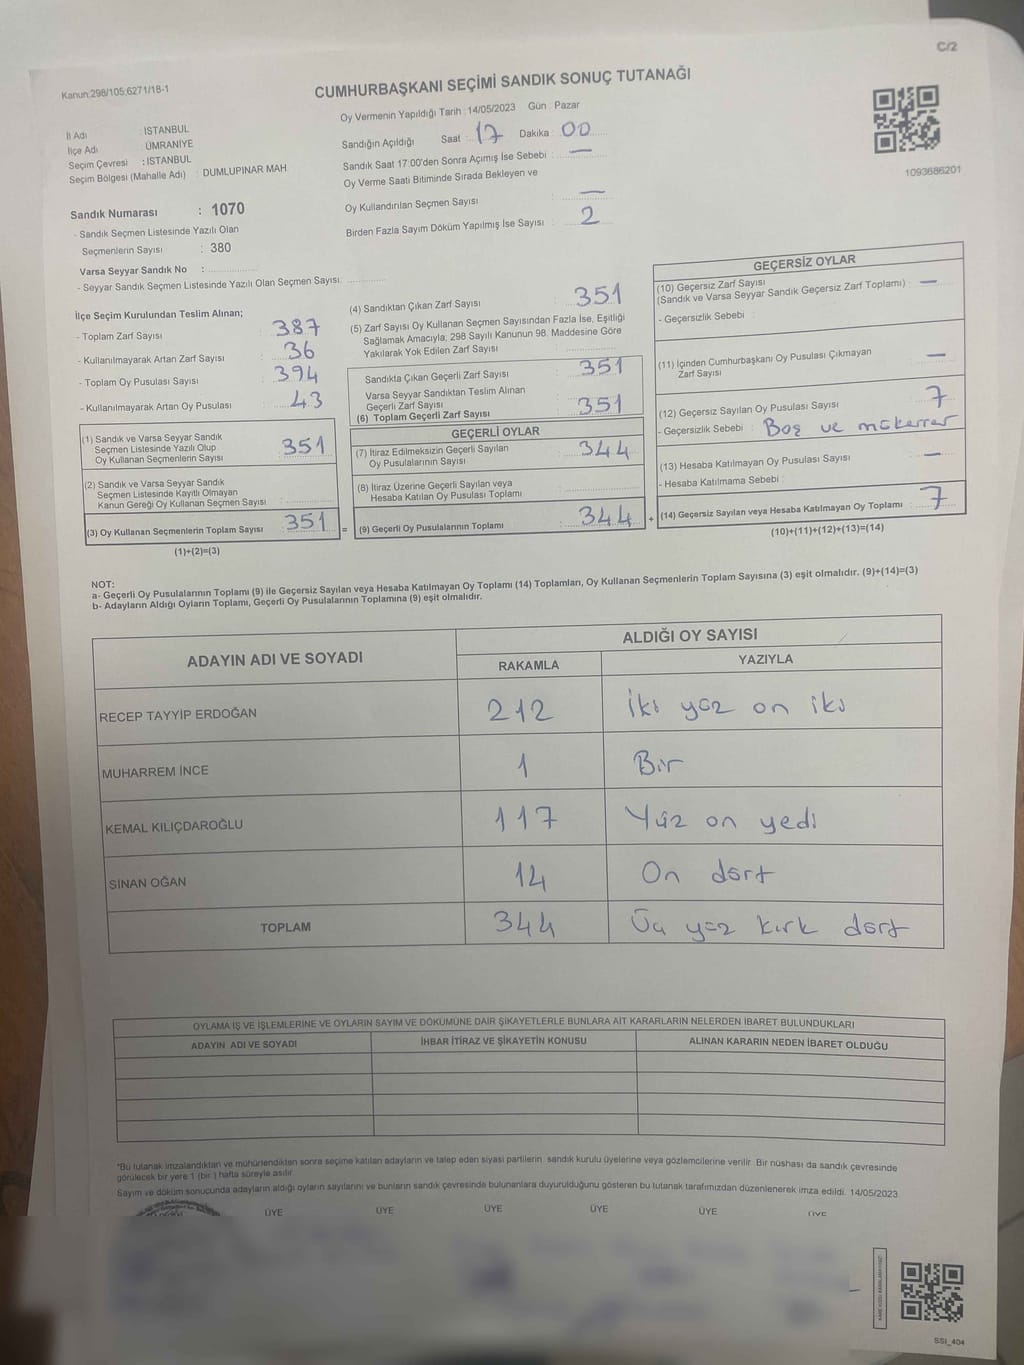 C/2
Kanun:298/105;6271/18-1
CUMHURBAŞKANI SEÇİMİ SANDIK SONUÇ TUTANAĞI
Oy Vermenin Yapıldığı Tarih : 14/05/2023 Gün : Pazar
İl Adı : İSTANBUL
İlçe Adı : ÜMRANİYE
Seçim Çevresi : İSTANBUL
Seçim Bölgesi (Mahalle Adı) : DUMLUPINAR MAH
Sandığın Açıldığı Saat : 17 Dakika : 00
Sandık Saat 17:00'den Sonra Açımış İse Sebebi : —
Oy Verme Saati Bitiminde Sırada Bekleyen ve
Oy Kullandırılan Seçmen Sayısı : —
Birden Fazla Sayım Döküm Yapılmış İse Sayısı : 2
1093686201
Sandık Numarası : 1070
- Sandık Seçmen Listesinde Yazılı Olan
Seçmenlerin Sayısı : 380
Varsa Seyyar Sandık No :
- Seyyar Sandık Seçmen Listesinde Yazılı Olan Seçmen Sayısı:
İlçe Seçim Kurulundan Teslim Alınan;
- Toplam Zarf Sayısı : 387
- Kullanılmayarak Artan Zarf Sayısı : 36
- Toplam Oy Pusulası Sayısı : 394
- Kullanılmayarak Artan Oy Pusulası : 43
(1) Sandık ve Varsa Seyyar Sandık
Seçmen Listesinde Yazılı Olup
Oy Kullanan Seçmenlerin Sayısı : 351
(2) Sandık ve Varsa Seyyar Sandık
Seçmen Listesinde Kayıtlı Olmayan
Kanun Gereği Oy Kullanan Seçmen Sayısı :
(3) Oy Kullanan Seçmenlerin Toplam Sayısı : 351 =
(1)+(2)=(3)
(4) Sandıktan Çıkan Zarf Sayısı : 351
(5) Zarf Sayısı Oy Kullanan Seçmen Sayısından Fazla İse, Eşitliği
Sağlamak Amacıyla, 298 Sayılı Kanunun 98. Maddesine Göre
Yakılarak Yok Edilen Zarf Sayısı :
Sandıkta Çıkan Geçerli Zarf Sayısı : 351
Varsa Seyyar Sandıktan Teslim Alınan
Geçerli Zarf Sayısı
(6) Toplam Geçerli Zarf Sayısı : 351
GEÇERLİ OYLAR
(7) İtiraz Edilmeksizin Geçerli Sayılan
Oy Pusulalarının Sayısı : 344
(8) İtiraz Üzerine Geçerli Sayılan veya
Hesaba Katılan Oy Pusulası Toplamı :
(9) Geçerli Oy Pusulalarının Toplamı : 344 +
GEÇERSİZ OYLAR
(10) Geçersiz Zarf Sayısı
(Sandık ve Varsa Seyyar Sandık Geçersiz Zarf Toplamı) : —
- Geçersizlik Sebebi :
(11) İçinden Cumhurbaşkanı Oy Pusulası Çıkmayan
Zarf Sayısı : —
(12) Geçersiz Sayılan Oy Pusulası Sayısı : 7
- Geçersizlik Sebebi : Boş ve mükerrer
(13) Hesaba Katılmayan Oy Pusulası Sayısı : —
- Hesaba Katılmama Sebebi :
(14) Geçersiz Sayılan veya Hesaba Katılmayan Oy Toplamı : 7
(10)+(11)+(12)+(13)=(14)
NOT:
a- Geçerli Oy Pusulalarının Toplamı (9) ile Geçersiz Sayılan veya Hesaba Katılmayan Oy Toplamı (14) Toplamları, Oy Kullanan Seçmenlerin Toplam Sayısına (3) eşit olmalıdır. (9)+(14)=(3)
b- Adayların Aldığı Oyların Toplamı, Geçerli Oy Pusulalarının Toplamına (9) eşit olmalıdır.
ADAYIN ADI VE SOYADI
ALDIĞI OY SAYISI
RAKAMLA YAZIYLA
RECEP TAYYİP ERDOĞAN 212 İki yüz on iki
MUHARREM İNCE 1 Bir
KEMAL KILIÇDAROĞLU 117 Yüz on yedi
SİNAN OĞAN 14 On dört
TOPLAM 344 Üç yüz kırk dört
OYLAMA İŞ VE İŞLEMLERİNE VE OYLARIN SAYIM VE DÖKÜMÜNE DAİR ŞİKAYETLERLE BUNLARA AİT KARARLARIN NELERDEN İBARET BULUNDUKLARI
ADAYIN ADI VE SOYADI İHBAR İTİRAZ VE ŞİKAYETİN KONUSU ALINAN KARARIN NEDEN İBARET OLDUĞU
*Bu tutanak imzalandıktan ve mühürlendikten sonra seçime katılan adayların ve talep eden siyasi partilerin sandık kurulu üyelerine veya gözlemcilerine verilir. Bir nüshası da sandık çevresinde
görülecek bir yere 1 (bir ) hafta süreyle asılır.
Sayım ve döküm sonucunda adayların aldığı oyların sayılarını ve bunların sandık çevresinde bulunanlara duyurulduğunu gösteren bu tutanak tarafımızdan düzenlenerek imza edildi. 14/05/2023
ÜYE ÜYE ÜYE ÜYE ÜYE ÜYE
SSI_404